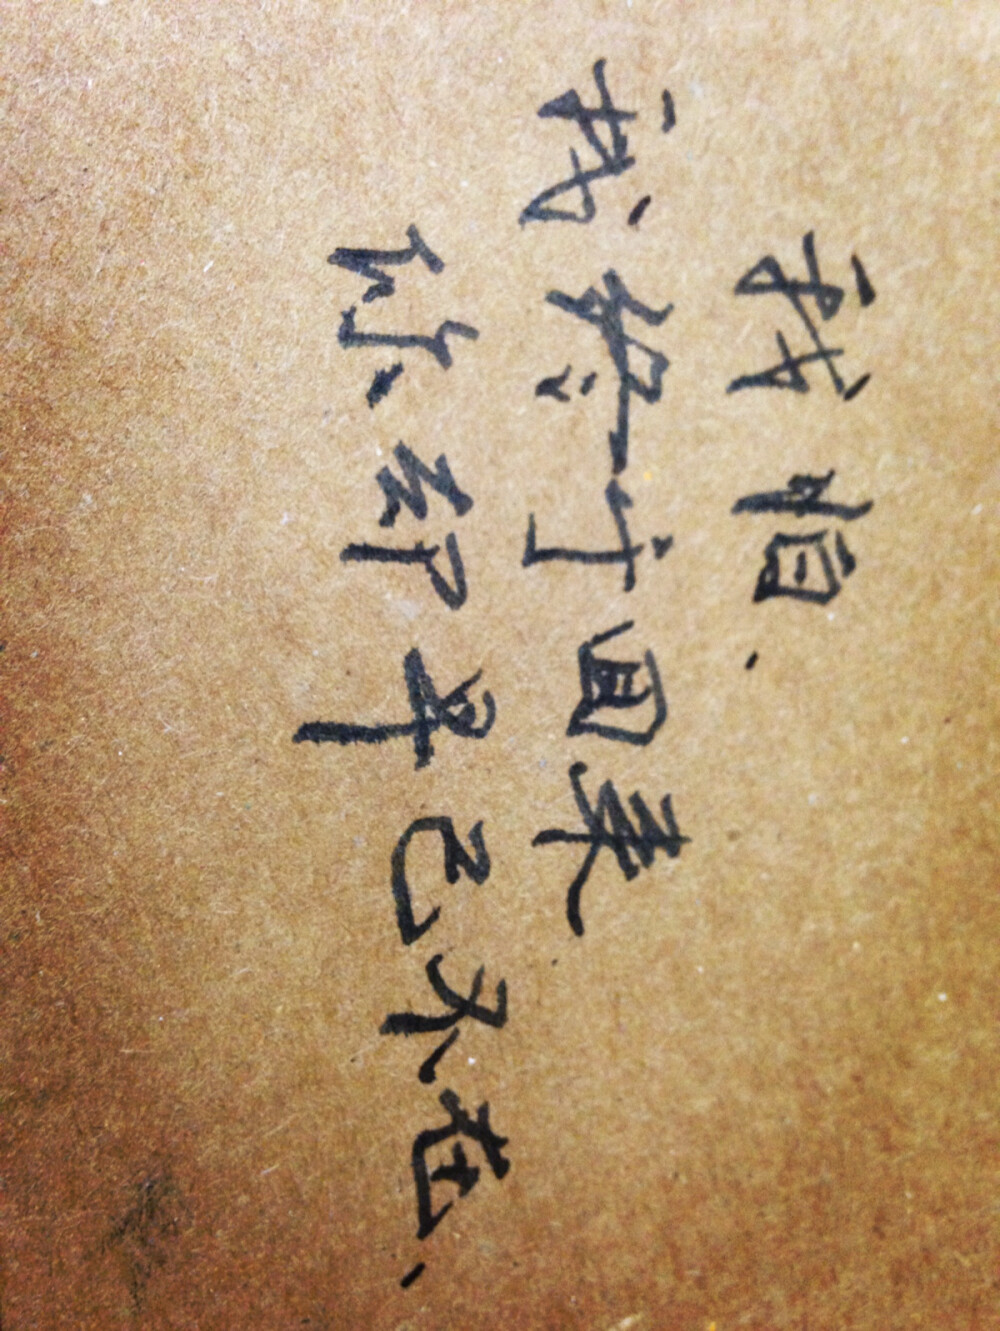 我怕、
我终于回来
你却早已不在、